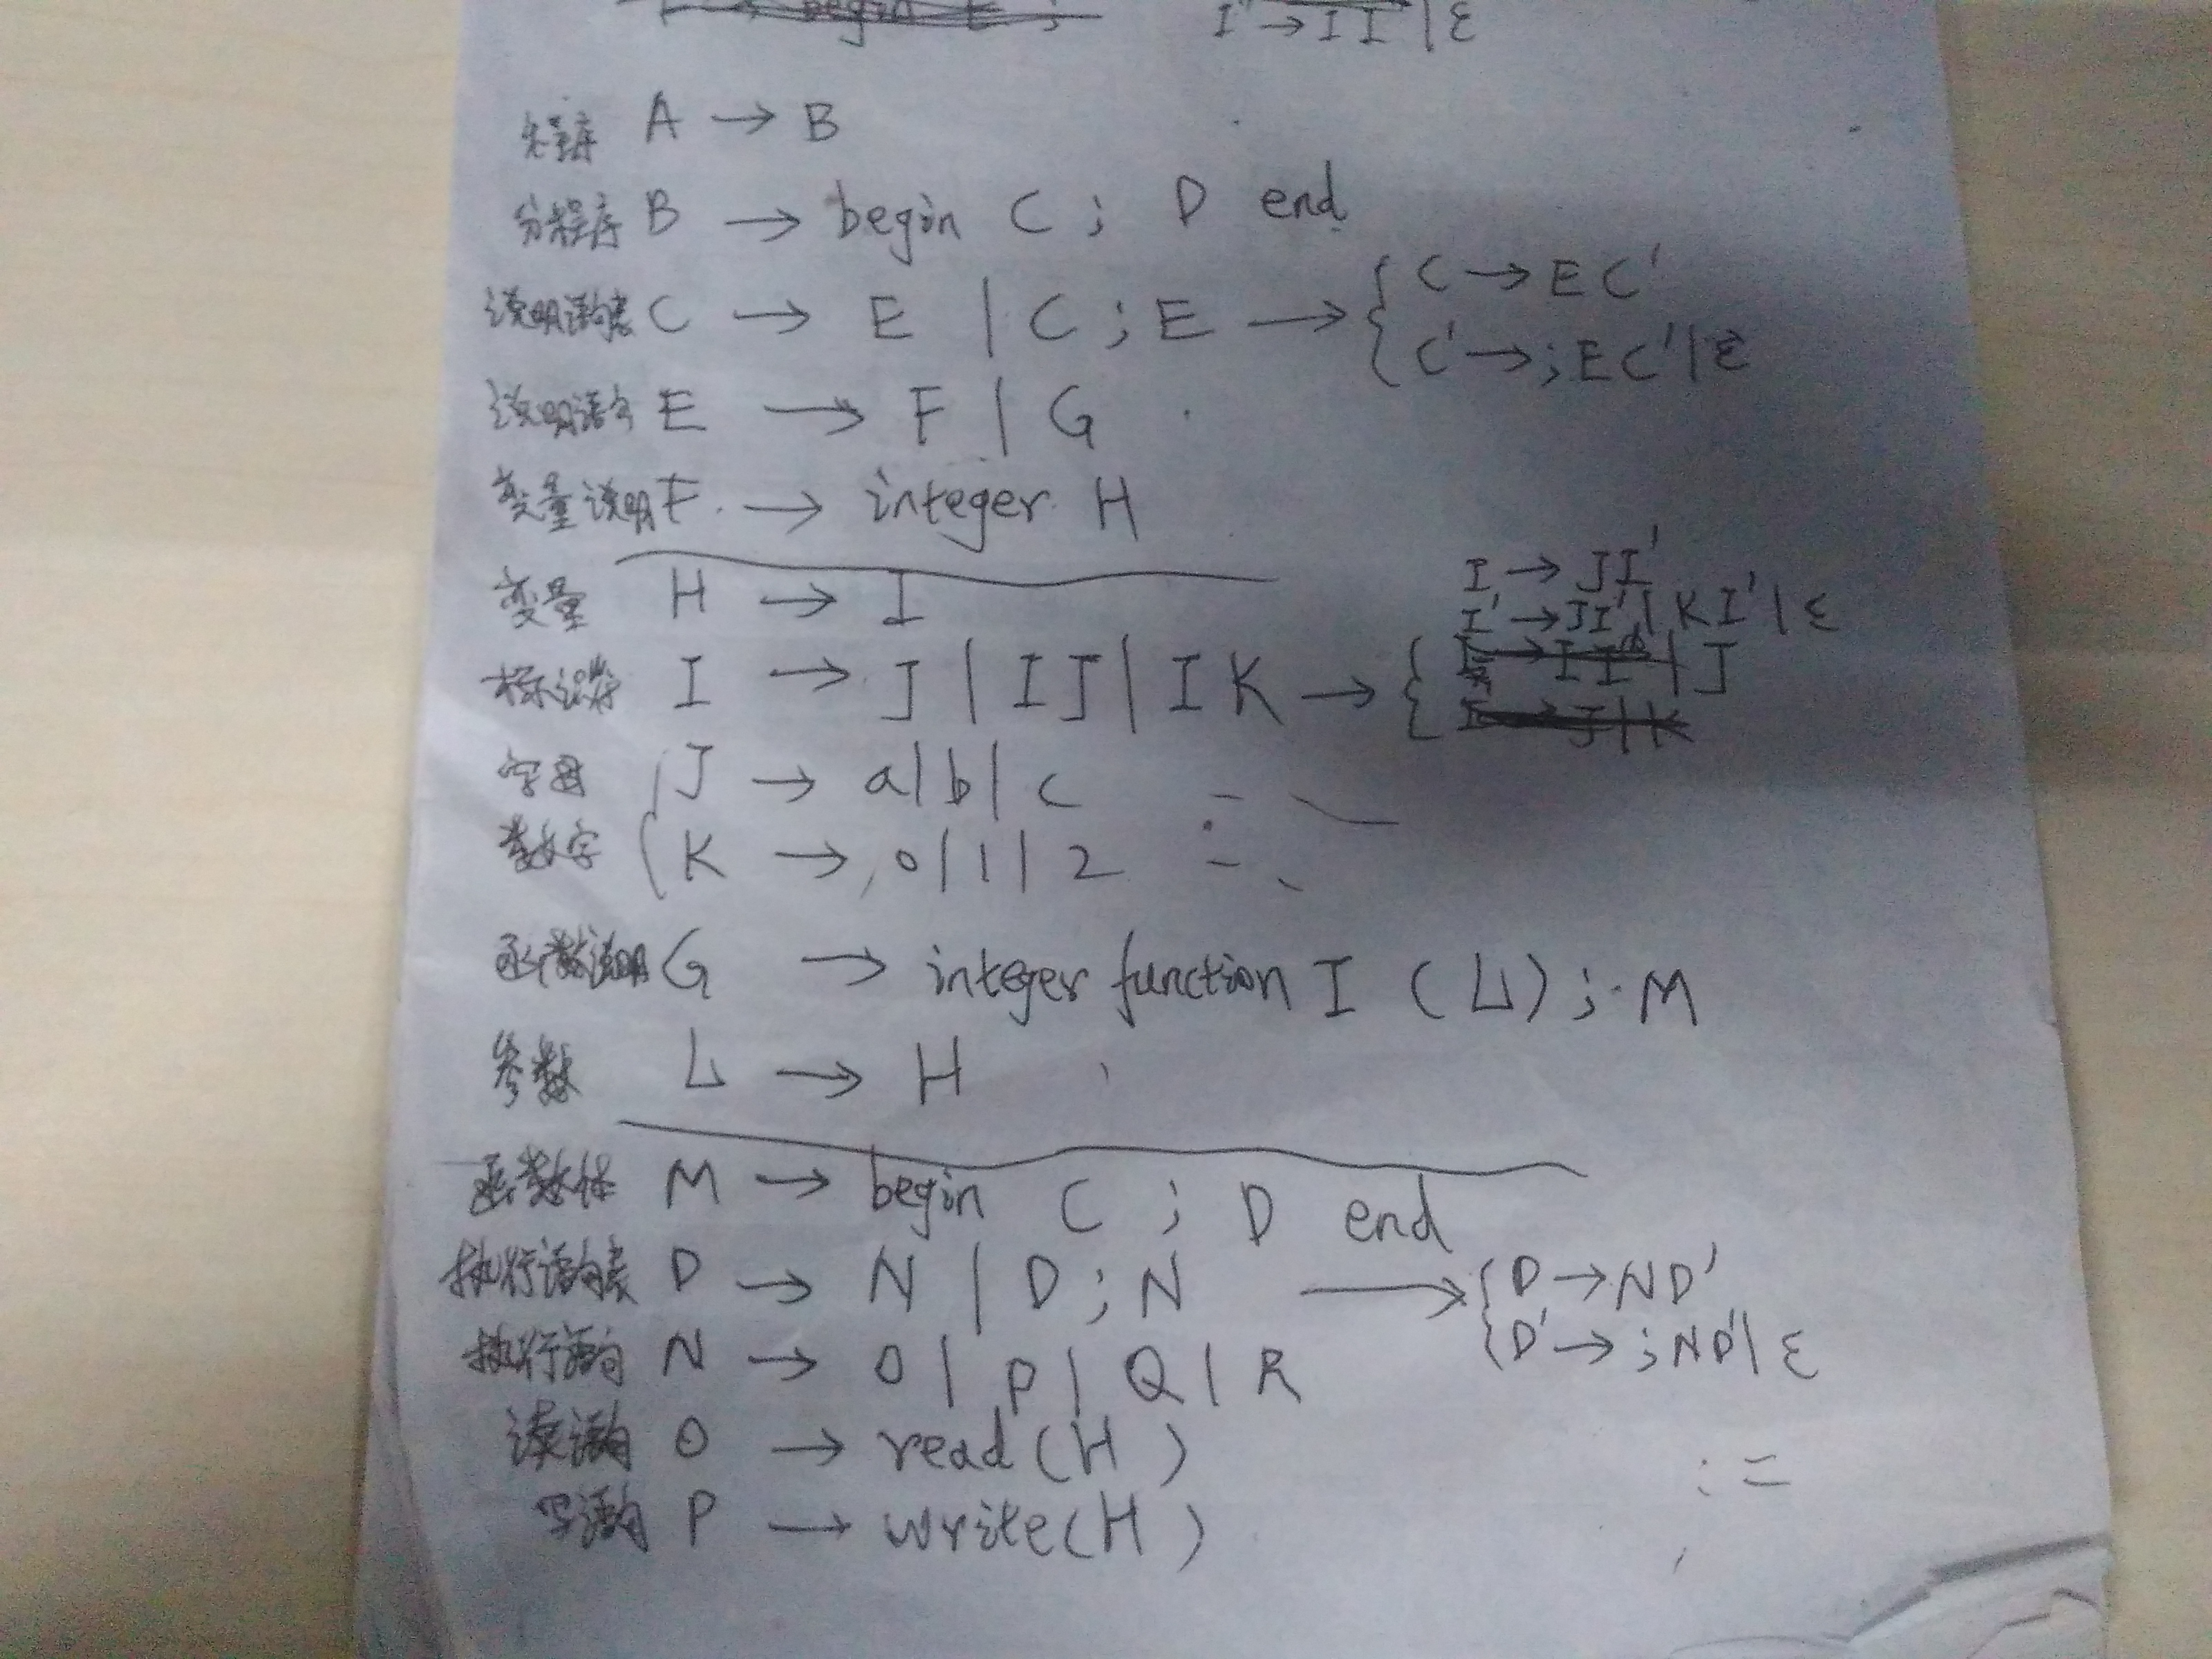 I' → I I' | ε
程序 A → B
分程序 B → begin C ; D end
说明语句表 C → E | C ; E → { C → E C'
C' → ; E C' | ε
说明语句 E → F | G
变量说明 F → integer H
变量 H → I
I → J I'
I' → J I' | K I' | ε
标识符 I → J | I J | I K → { | J
字母 J → a | b | c
数字 K → 0 | 1 | 2
函数说明 G → integer function I ( L ) ; M
参数 L → H
函数体 M → begin C ; D end
执行语句表 D → N | D ; N → { D → N D'
D' → ; N D' | ε
执行语句 N → O | P | Q | R
读语句 O → read ( H )
写语句 P → write ( H )
: =